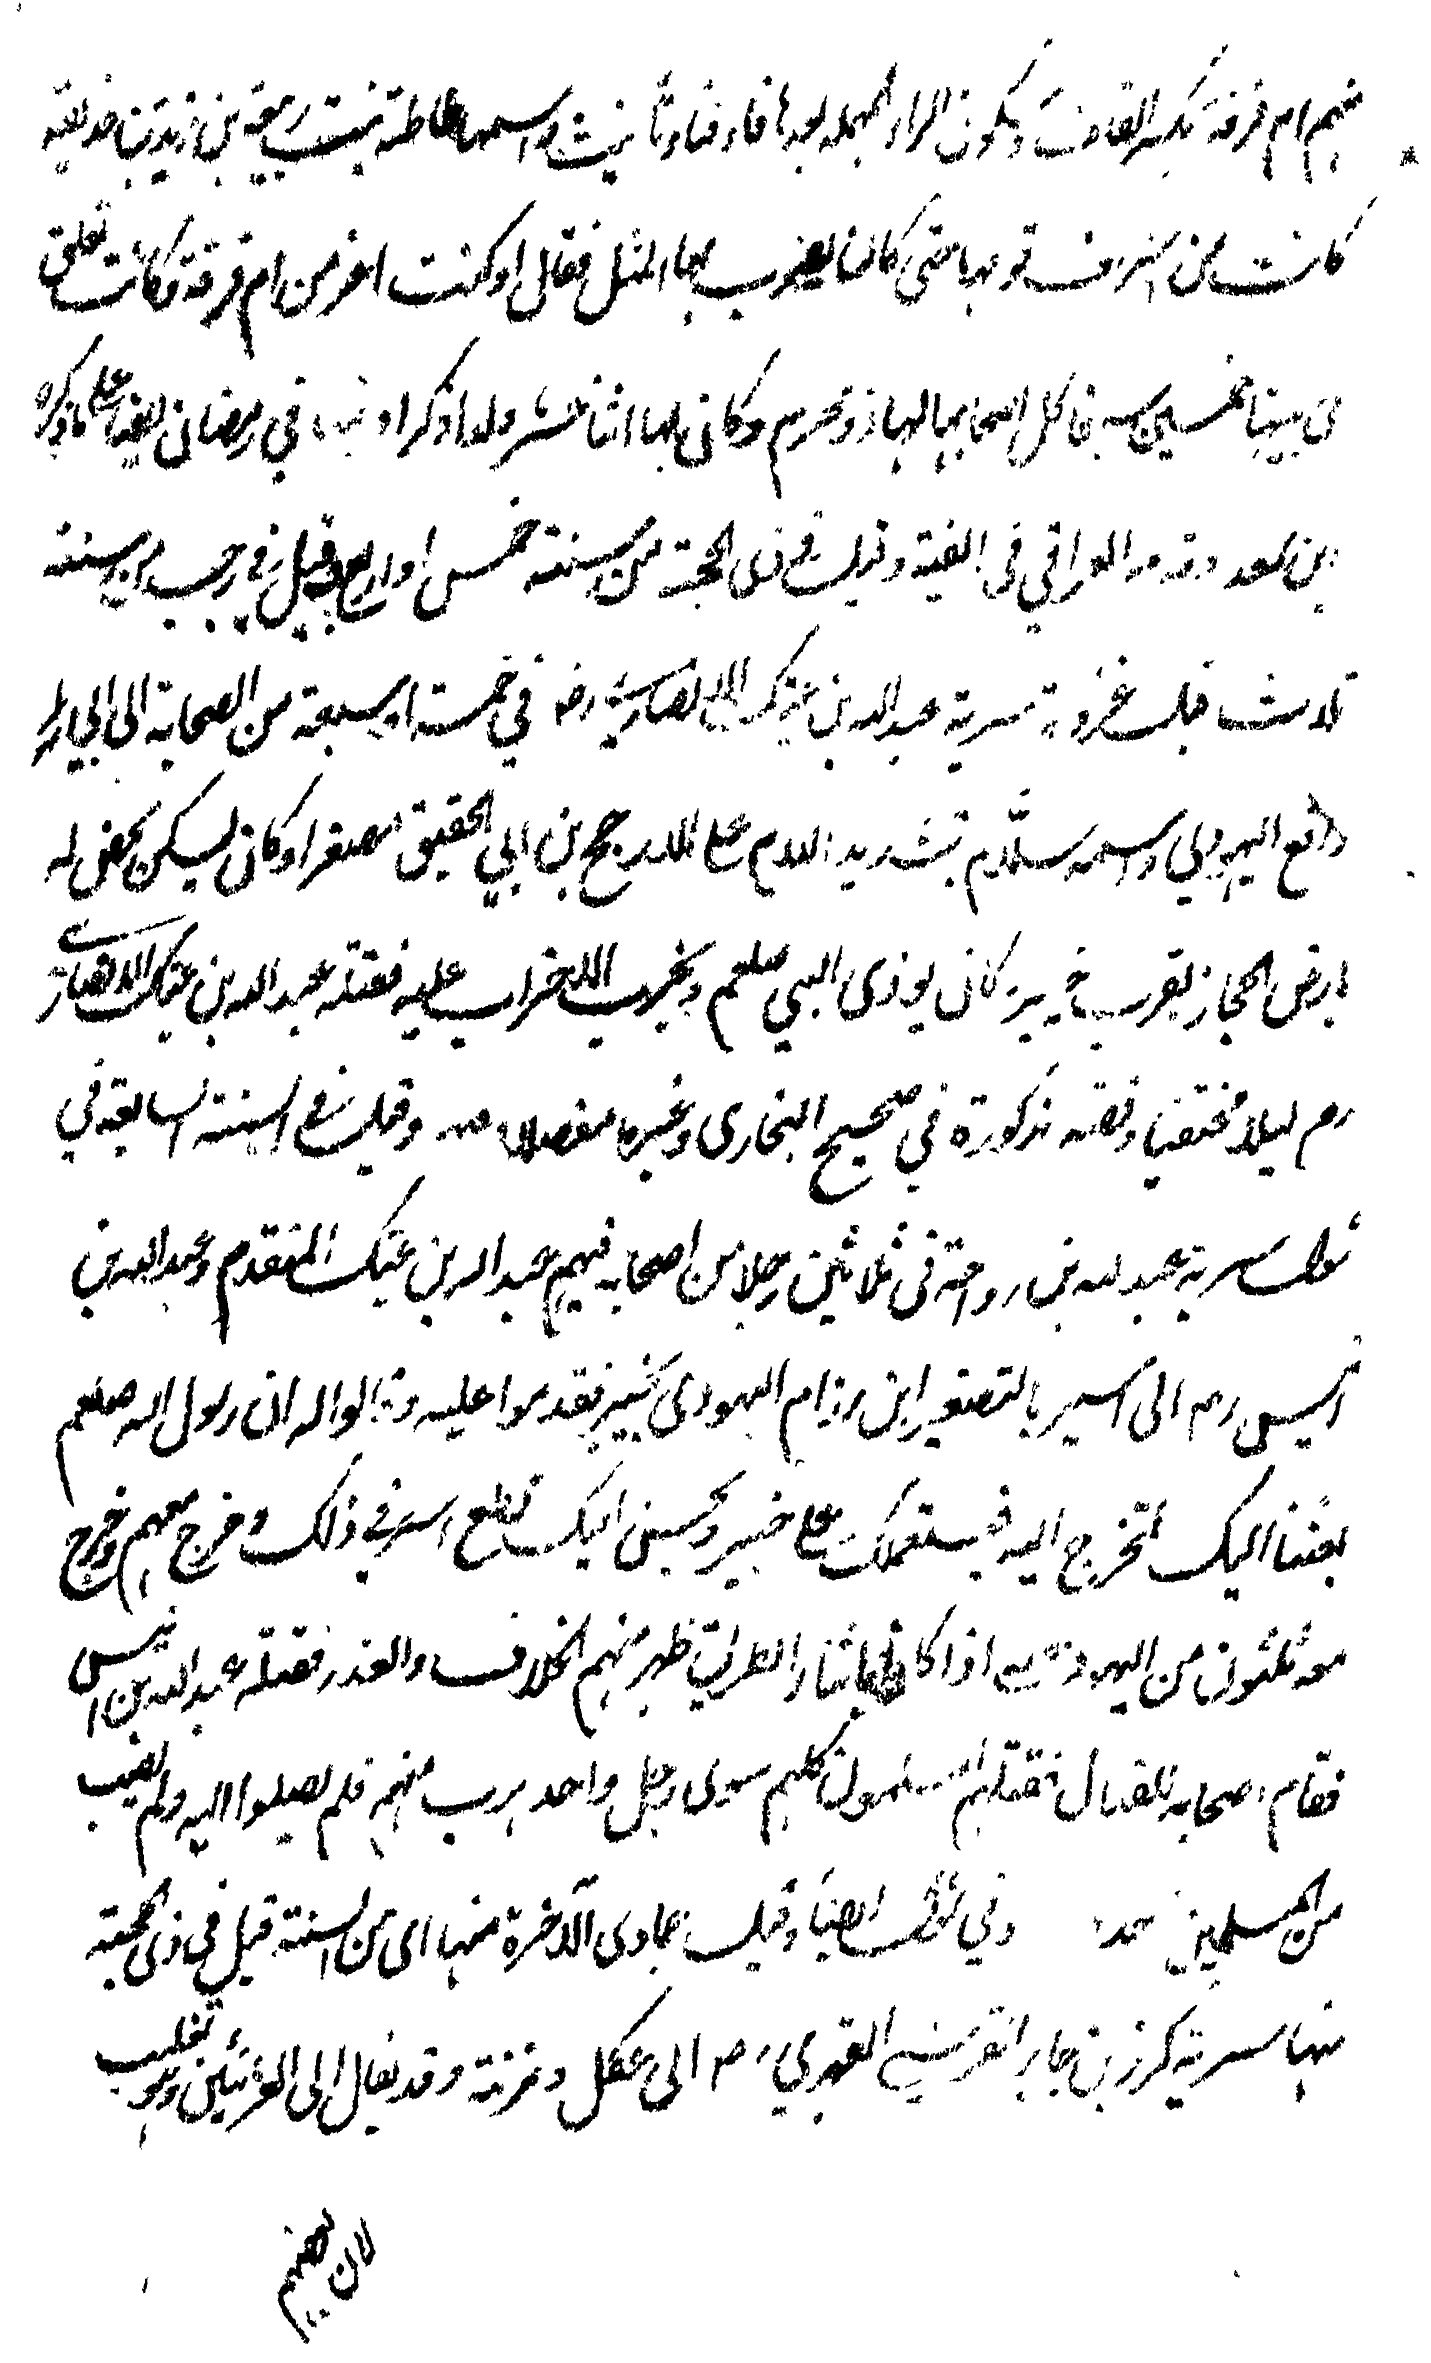 منهم ام قرفة بكسر القاف وسكون الراء المهملة بعدها فاء وتاء تأنيث واسمها فاطمة بنت ربيعة بن زيد بن حذيفة
كانت من اشرف قومها حتى كان يضرب بها المثل فيقال لو كنت اعز من ام قرفة وكانت تعلق
في بيتها خمسين سيفا كل اصحابها لها ذو محرم وكان لها اثنا عشر ولدا ذكرا وفي رمضان ايضا على ما ذكره
ابن سعد وقدمه العراقي في الفية وقيل في ذي الحجة من سنة خمس او اربع وقيل في رجب من سنة
ثلاث قبل غزوة سرية عبد الله بن عتيك الانصاري رض في خمسة او سبعة من الصحابة الى ابي رافع
رافع اليهودي واسمه سلّام بتشديد اللام على الارجح بن ابي الحقيق مصغرا وكان يسكن بحصن له
بارض الحجاز بقرب خيبر كان يوذى النبي صلعم ويحزب الاحزاب عليه فقتله عبد الله بن عتيك الانصاري
رض ليلا مختفيا وقصته مذكورة في صحيح البخارى وغيره مفصلا وقيل في السنة السابعة في
شوال سرية عبد الله بن رواحة في ثلاثين رجلا من اصحابه فيهم عبد الله بن عتيك المتقدم وعبد الله بن
انيس رض الى اسير بالتصغير ابن رزام اليهودى بخيبر فقدموا عليه وقالوا له ان رسول الله صلعم
بعثنا اليك لتخرج اليه فيستعملك على خيبر ويحسن اليك فطمع اسير في ذلك وخرج معهم وخرج
معه ثلثون من اليهود حتى اذا كانوا باثناء الطريق ظهر منهم الخلاف والغدر فقتله عبد الله بن انيس
فقام اصحابه للقتال فقتلهم المسلمون كلهم سوى رجل واحد هرب منهم فلم يصلوا اليه ولم يصب
من المسلمين احد وفي شوال ايضا وقيل جمادى الآخرة منها اى من السنة وقيل في ذى الحجة
منها سرية كرز بن جابر القرشي الفهري رض الى عكل وعرينة وقد يقال الى العرنيين وهو تغليب
لان بعضهم